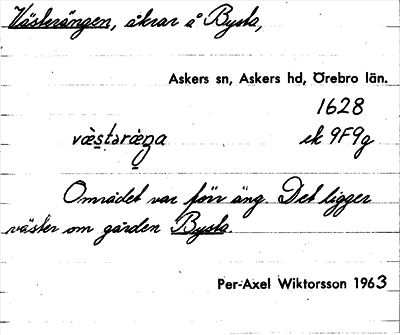 Västerängen, åkrar å Bysta,
Askers sn, Askers hd, Örebro län.
1628
væ̀stəræŋa ek 9F9g
Området var förr äng. Det ligger
väster om gården Bysta.
Per-Axel Wiktorsson 1963